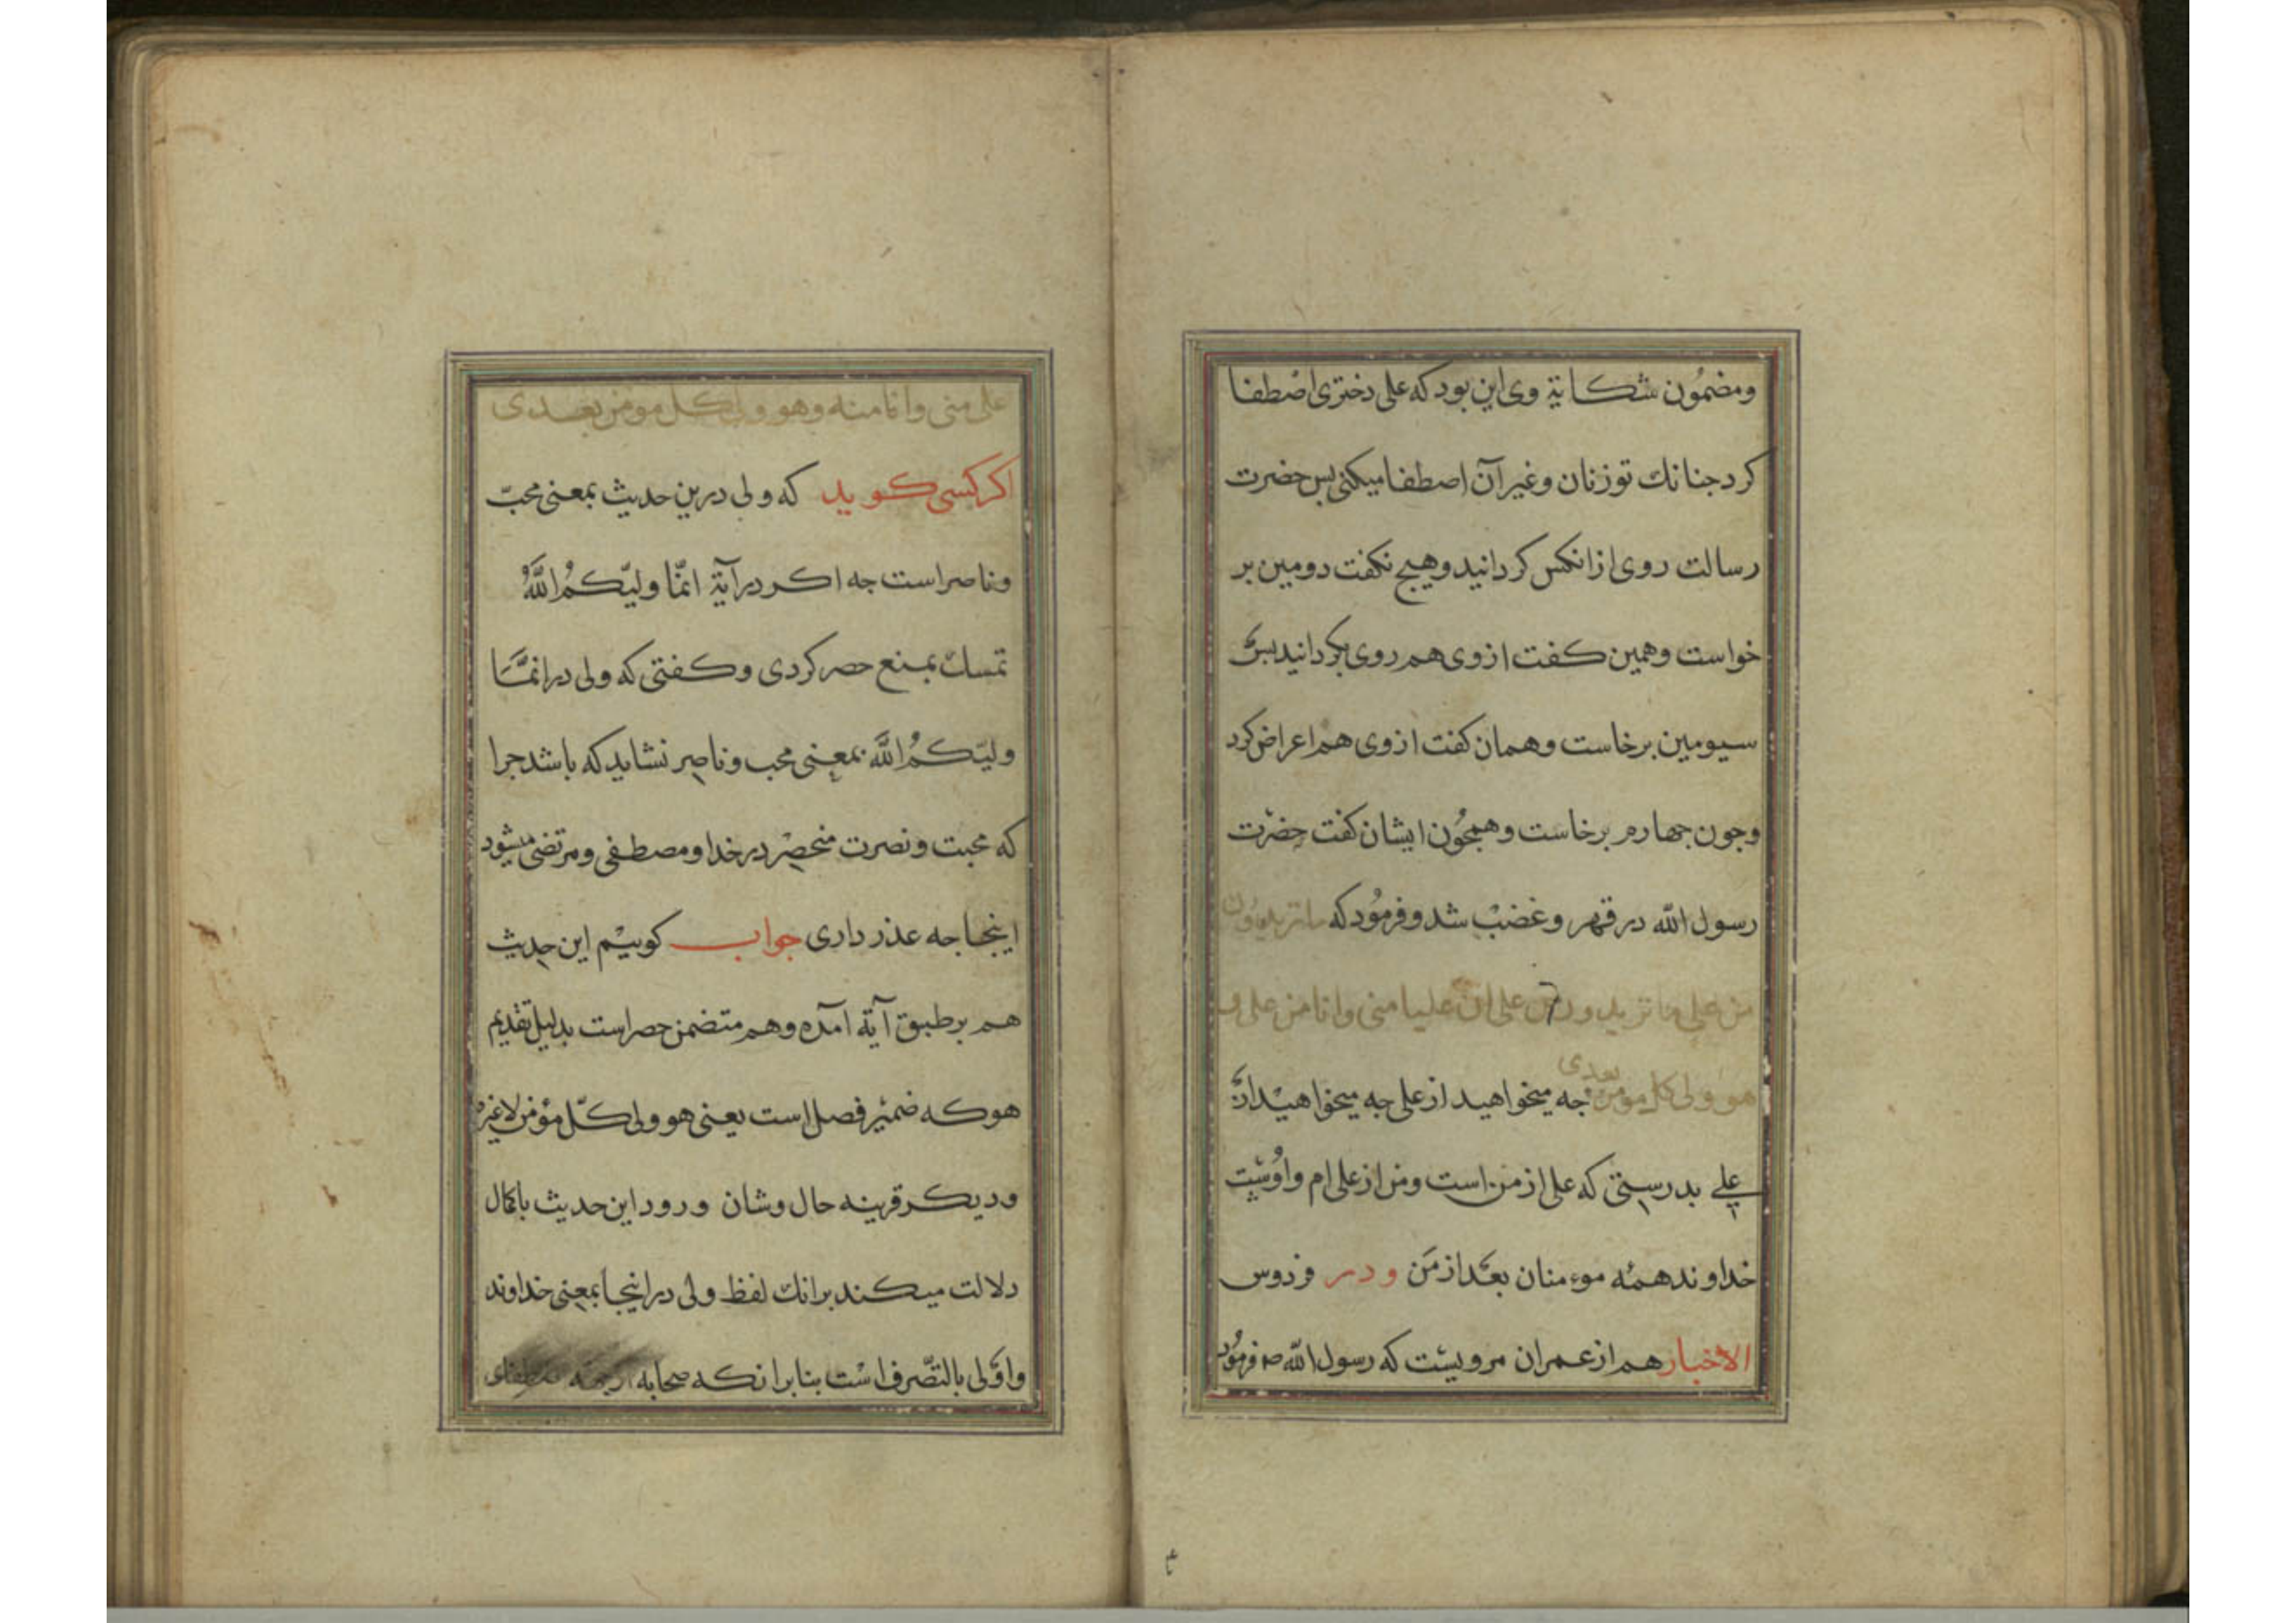 ومضمُون شكاية وی این بود که علی دختری اصطفا
کرد جنانك تو زنان وغیر آن اصطفا میکنی بس حضرت
رسالت روی از انکس کردانید وهیج نکفت دومین بر
خواست وهمین کفت از وی هم روی بکردانید بس
سیومین برخاست وهمان کفت از وی هم اعراض کرد
وجون جهارم برخاست وهمجُون ایشان کفت حضرت
رسول الله در قهر وغضب شد وفرمُود که ما تریدون
من علی ما تریدون من علی ان علیا منی وانا من علی و
هو ولی کل مومن بعدی جه میخواهید از علی جه میخواهید از
علی بدرستی که علی از من است ومن از علی ام واوست
خداوند همه موءمنان بعد از من ودر فردوس
الاخبار هم از عمران مرویست که رسول الله ص فرمُود
علی منی وانا منه وهو ولی کل مومن بعدی
اکر کسی کوید که ولی درین حدیث بمعنی محبّ
وناصر است جه اکر در آیة انّما ولیّکمُ اللّهُ
تمسك بمنع حصر کردی وکفتی که ولی در انمّا
ولیّکمُ اللّه بمعنی محب وناصر نشاید که باشد جرا
که محبت ونصرت منحصر در خدا ومصطفی ومرتضی میشود
اینجا جه عذر داری جواب کوییم این حدیث
هم بر طبق آیة آمده وهم متضمن حصر است بدلیل تقدیم
هو که ضمیر فصل است یعنی هو ولی کلّ مؤمن لا غیره
ودیکر قرینه حال وشان ورود این حدیث باکمال
دلالت میکند برانك لفظ ولی در اینجا بمعنی خداوند
واوّلی بالتصّرف است بنا برانکه صحابه
۴